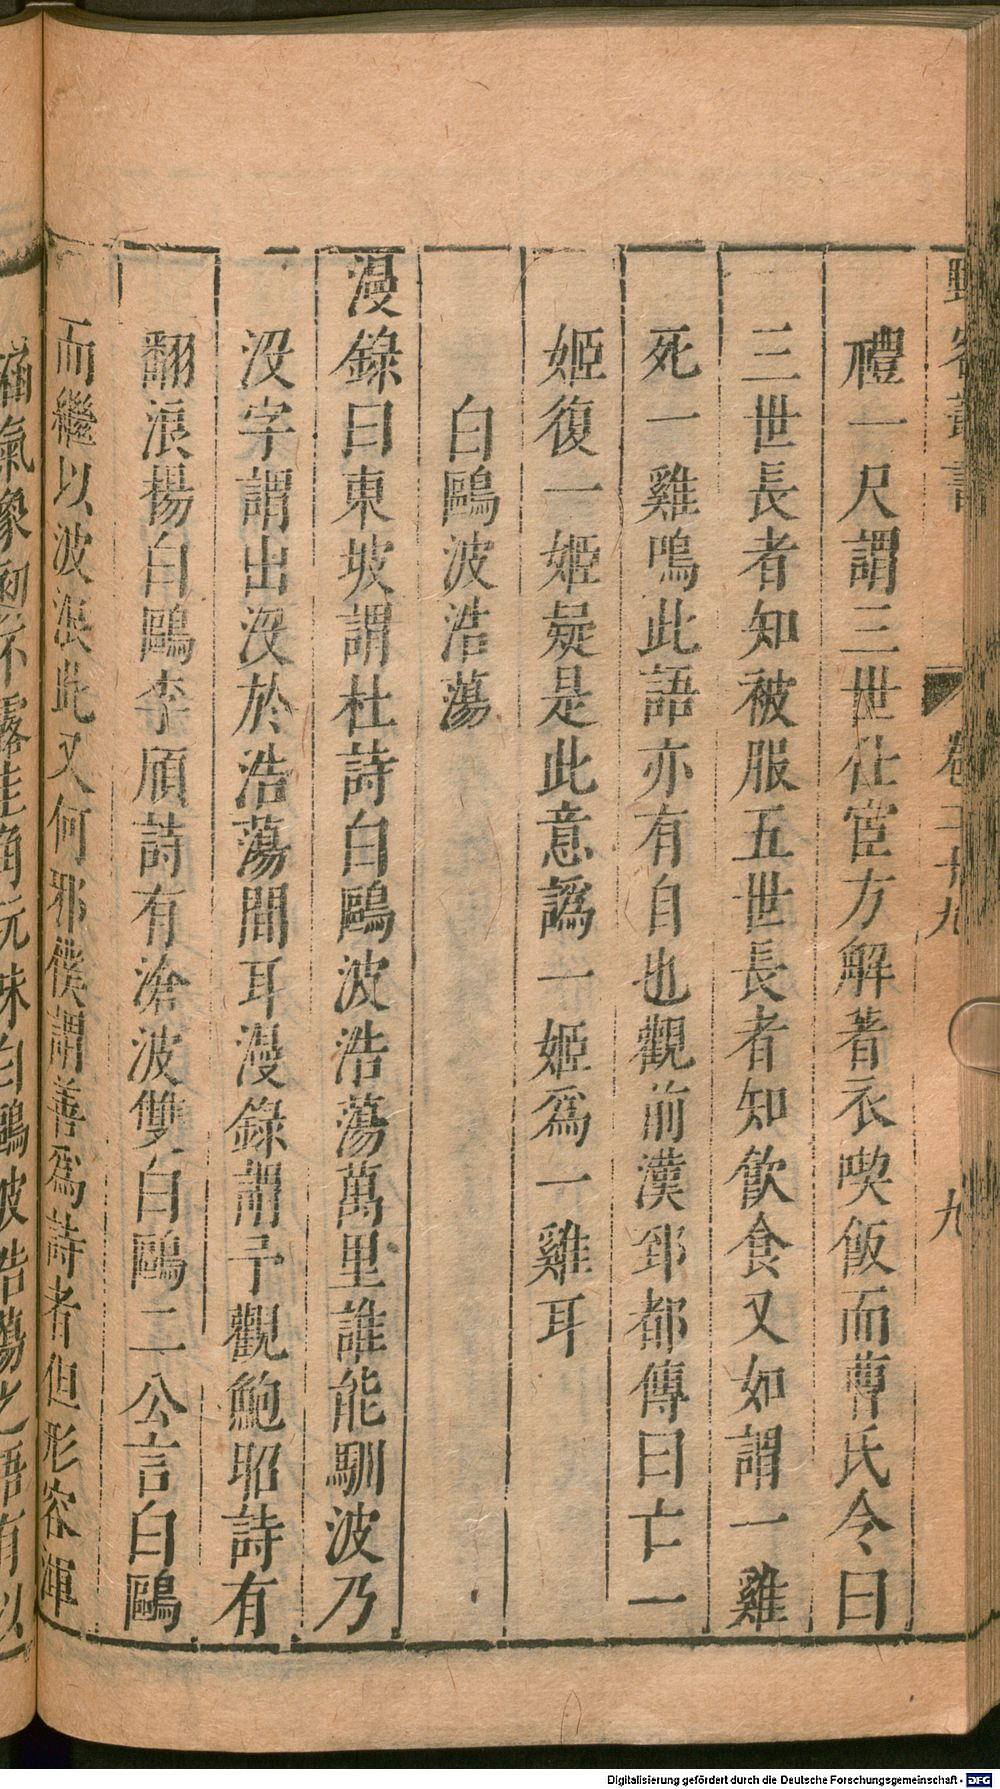 野客叢書 卷二十九 九
禮一尺謂三世仕宦方解著衣喫飯而曹氏令曰
三世長者知被服五世長者知飲食又如謂一雞
死一雞鳴此語亦有自也觀前漢郅都傳曰亡一
姬復一姬疑是此意譌一姬爲一雞耳
白鷗波浩蕩
漫錄曰東坡謂杜詩白鷗波浩蕩萬里誰能馴波乃
沒字謂出沒於浩蕩間耳漫錄謂予觀鮑昭詩有
翻浪楊白鷗李頎詩有滄波雙白鷗二公言白鷗
而繼以波浪此又何邪僕謂善爲詩者但形容渾
涵氣象初不露圭角玩味白鷗波浩蕩之語有以
Digitalisierung gefördert durch die Deutsche Forschungsgemeinschaft - DFG